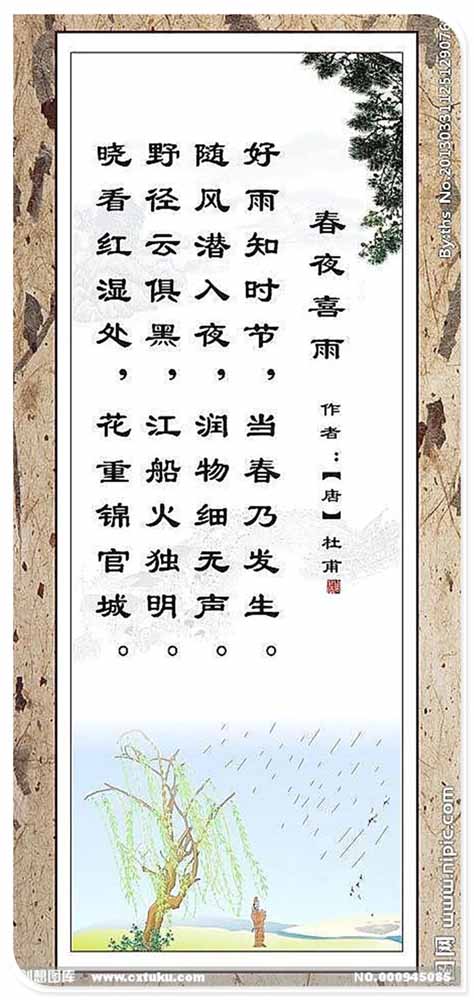 春夜喜雨
作者：【唐】杜甫
好雨知时节，当春乃发生。
随风潜入夜，润物细无声。
野径云俱黑，江船火独明。
晓看红湿处，花重锦官城。
By:ths No.20130331125129076
图网 www.nipic.com
创想图库 www.cxtuku.com NO.000945085